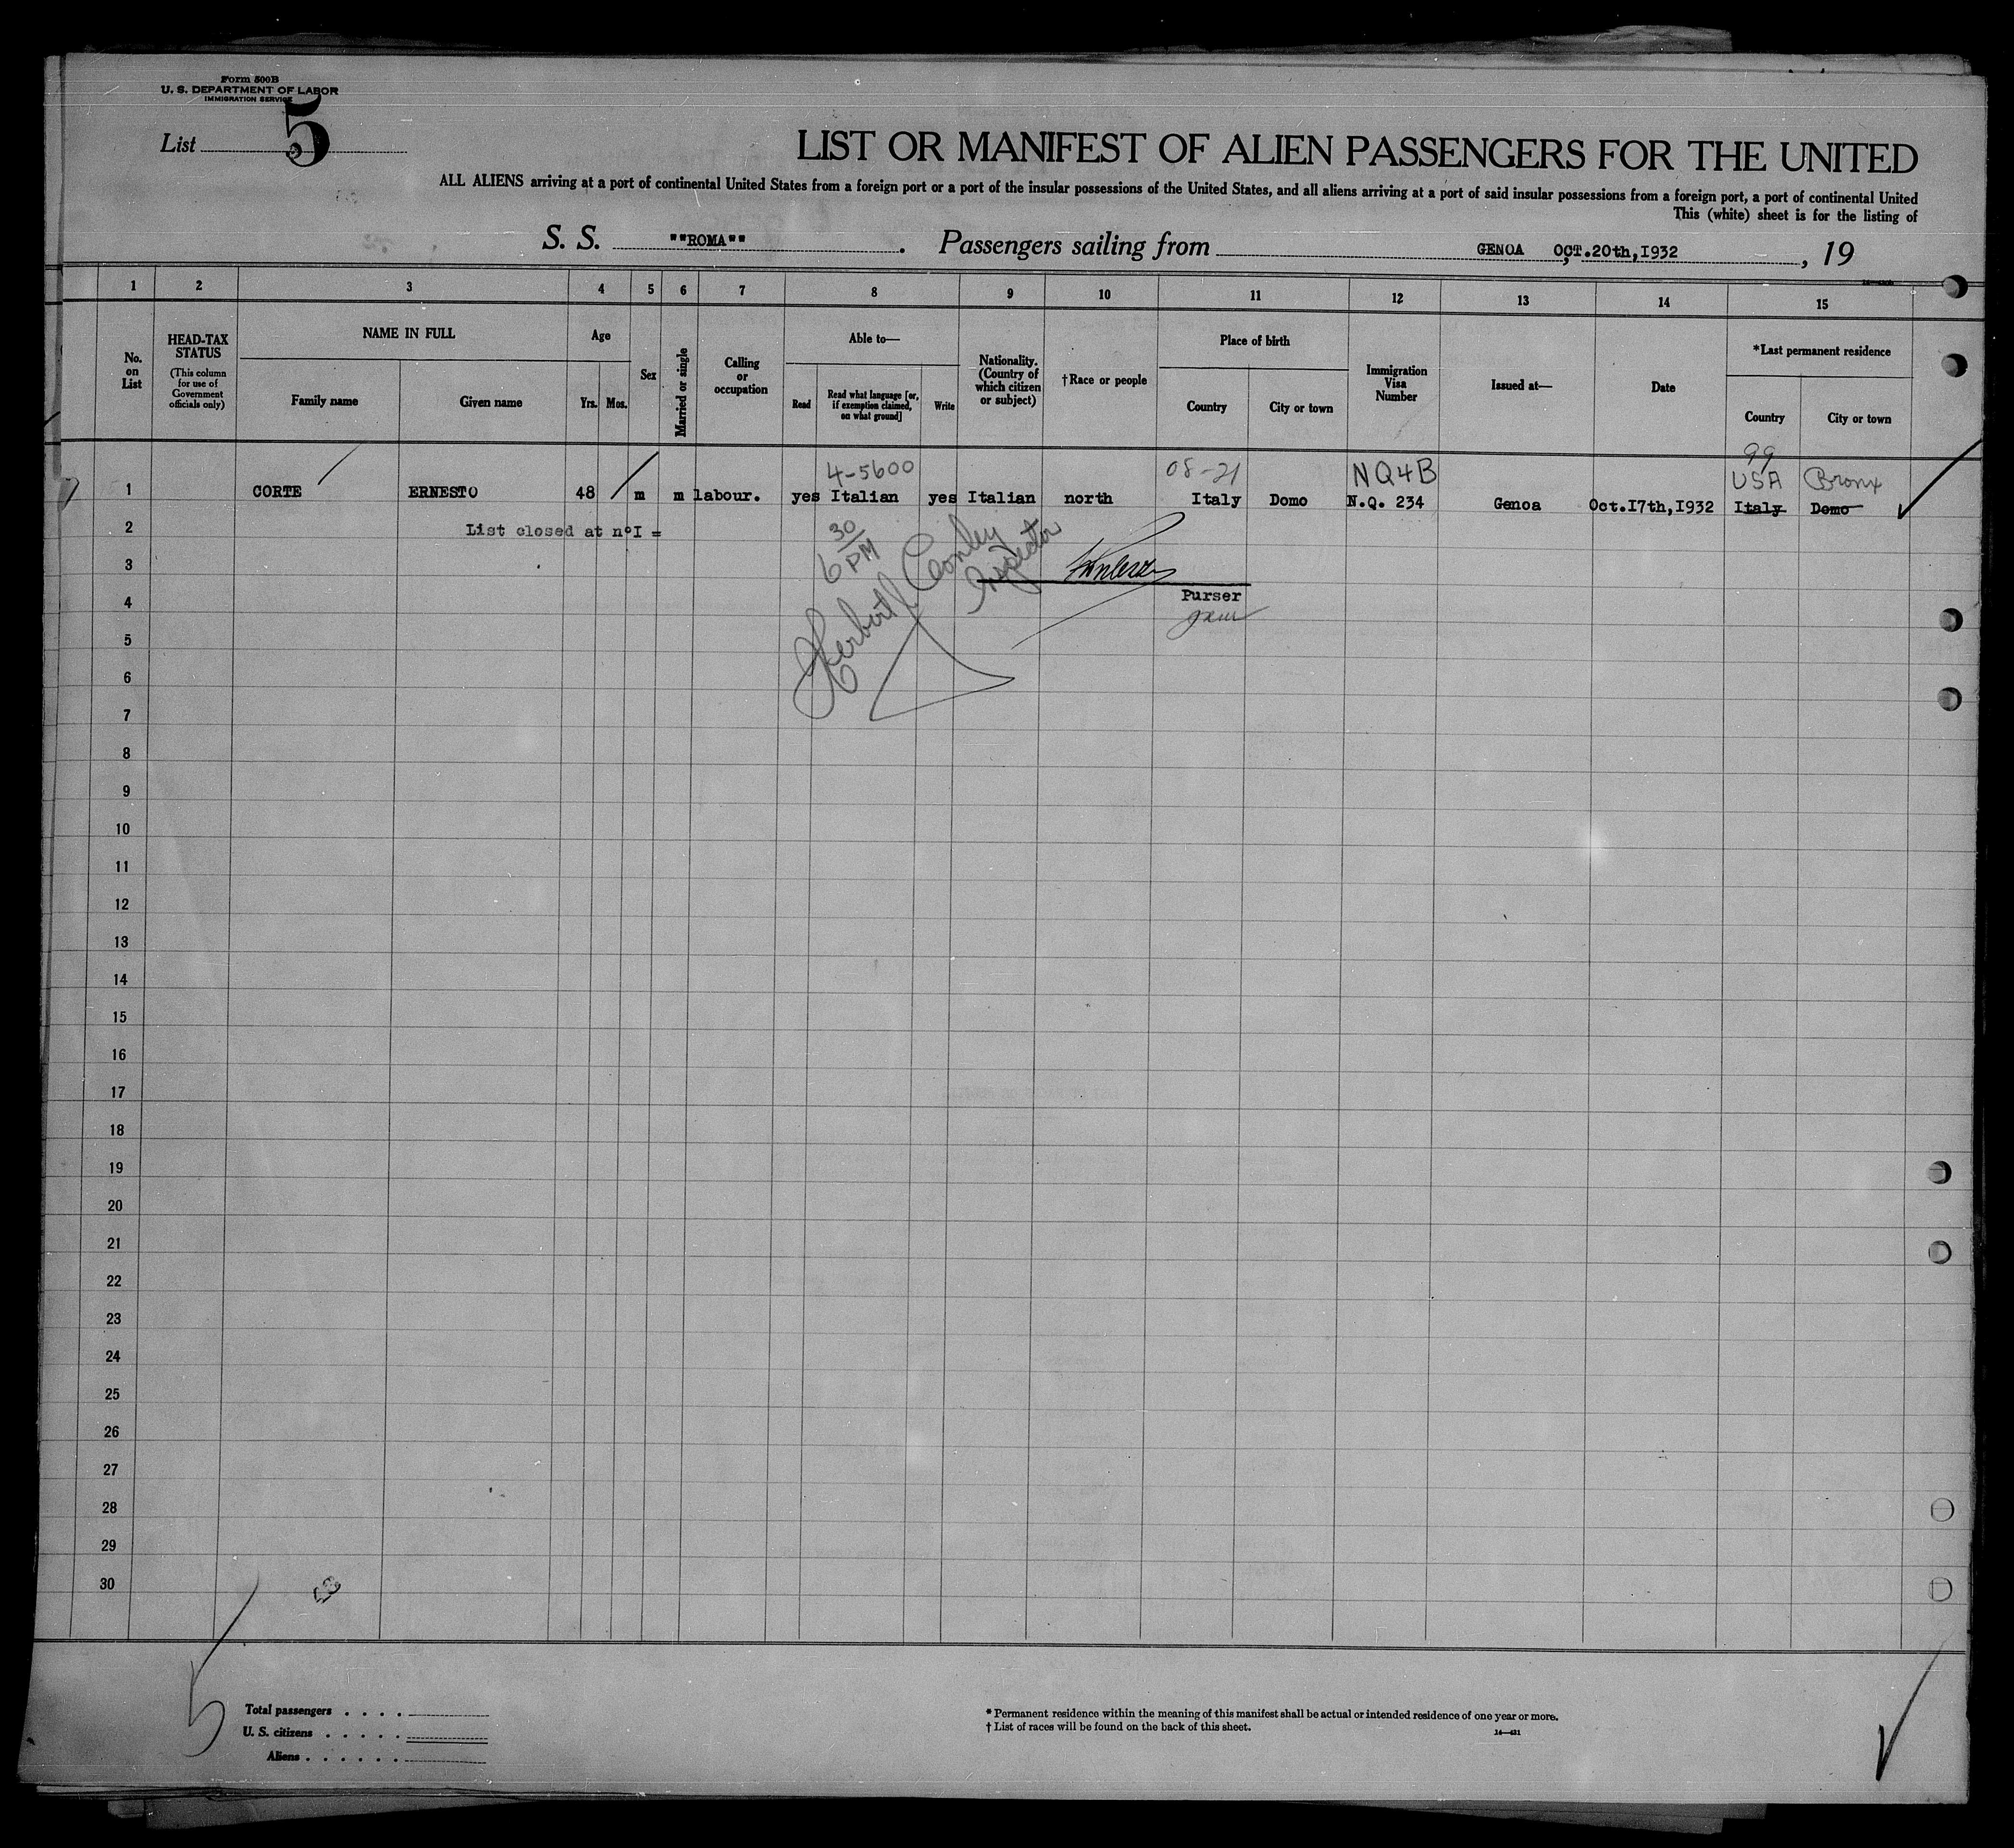 Form 500B
U. S. DEPARTMENT OF LABOR
IMMIGRATION SERVICE
List 5
LIST OR MANIFEST OF ALIEN PASSENGERS FOR THE UNITED
ALL ALIENS arriving at a port of continental United States from a foreign port or a port of the insular possessions of the United States, and all aliens arriving at a port of said insular possessions from a foreign port, a port of continental United
This (white) sheet is for the listing of
S. S. ""ROMA"". Passengers sailing from GENOA OCT.20th,I932, 19
1 2 3 4 5 6 7 8 9 10 11 12 13 14 15
No. on List
HEAD-TAX STATUS
(This column for use of Government officials only)
NAME IN FULL
Family name
Given name
Age
Yrs. Mos.
Sex
Married or single
Calling or occupation
Able to—
Read
Read what language [or, if exemption claimed, on what ground]
Write
Nationality. (Country of which citizen or subject)
†Race or people
Place of birth
Country
City or town
Immigration Visa Number
Issued at—
Date
*Last permanent residence
Country
City or town
4-5600 08-21 NQ4B 99 USA Bronx
1 CORTE ERNESTO 48 m m labour. yes Italian yes Italian north Italy Domo N.Q. 234 Genoa Oct.I7th,I932 Italy Domo
2 List closed at n°I =
6 30 PM
Herbert Conley
Inspector
3
Purser
4
5
6
7
8
9
10
11
12
13
14
15
16
17
18
19
20
21
22
23
24
25
26
27
28
29
30
5
Total passengers . . . .
U. S. citizens . . . . .
Aliens . . . . . .
* Permanent residence within the meaning of this manifest shall be actual or intended residence of one year or more.
† List of races will be found on the back of this sheet.